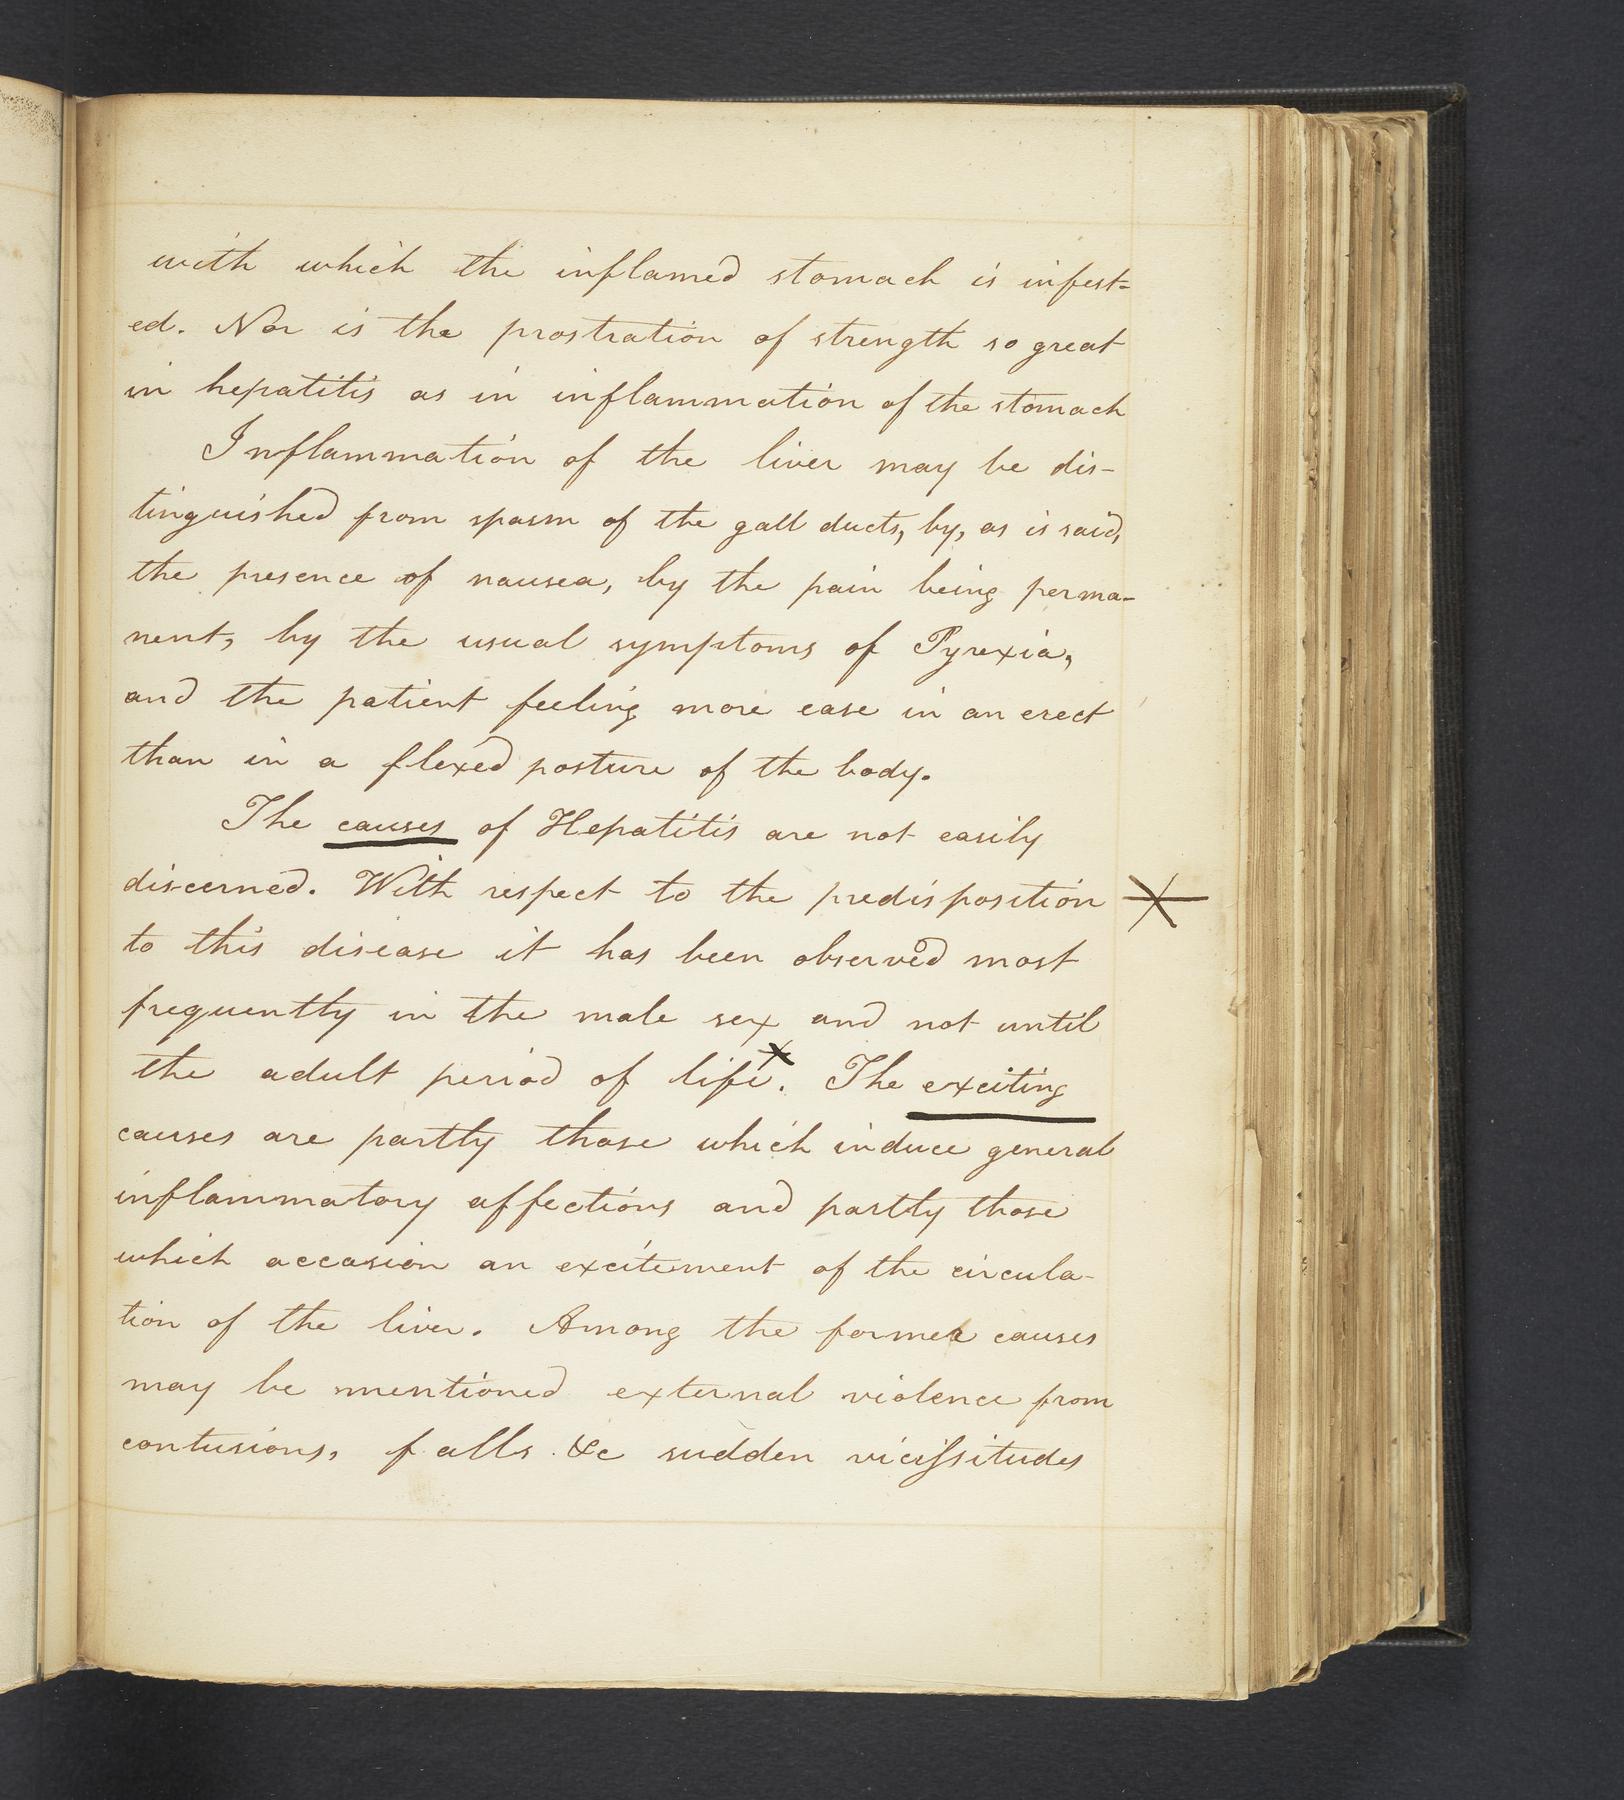 with which the inflamed stomach is infest=
ed. Nor is the prostration of strength so great
in hepatitis as in inflammation of the stomach
Inflammation of the liver may be dis-
tinguished from spasm of the gall ducts, by, as is said,
the presence of nausea, by the pain being perma-
nent, by the usual symptoms of Pyrexia,
and the patient feeling more ease in an erect
than in a flexed posture of the body.
The causes of Hepatitis are not easily
discerned. With respect to the predisposition *
to this disease it has been observed most
frequently in the male sex and not until
the adult period of life.* The exciting
causes are partly those which induce general
inflammatory affections and partly those
which occasion an excitement of the circula-
tion of the liver. Among the former causes
may be mentioned external violence from
contusions, falls &c sudden vicissitudes